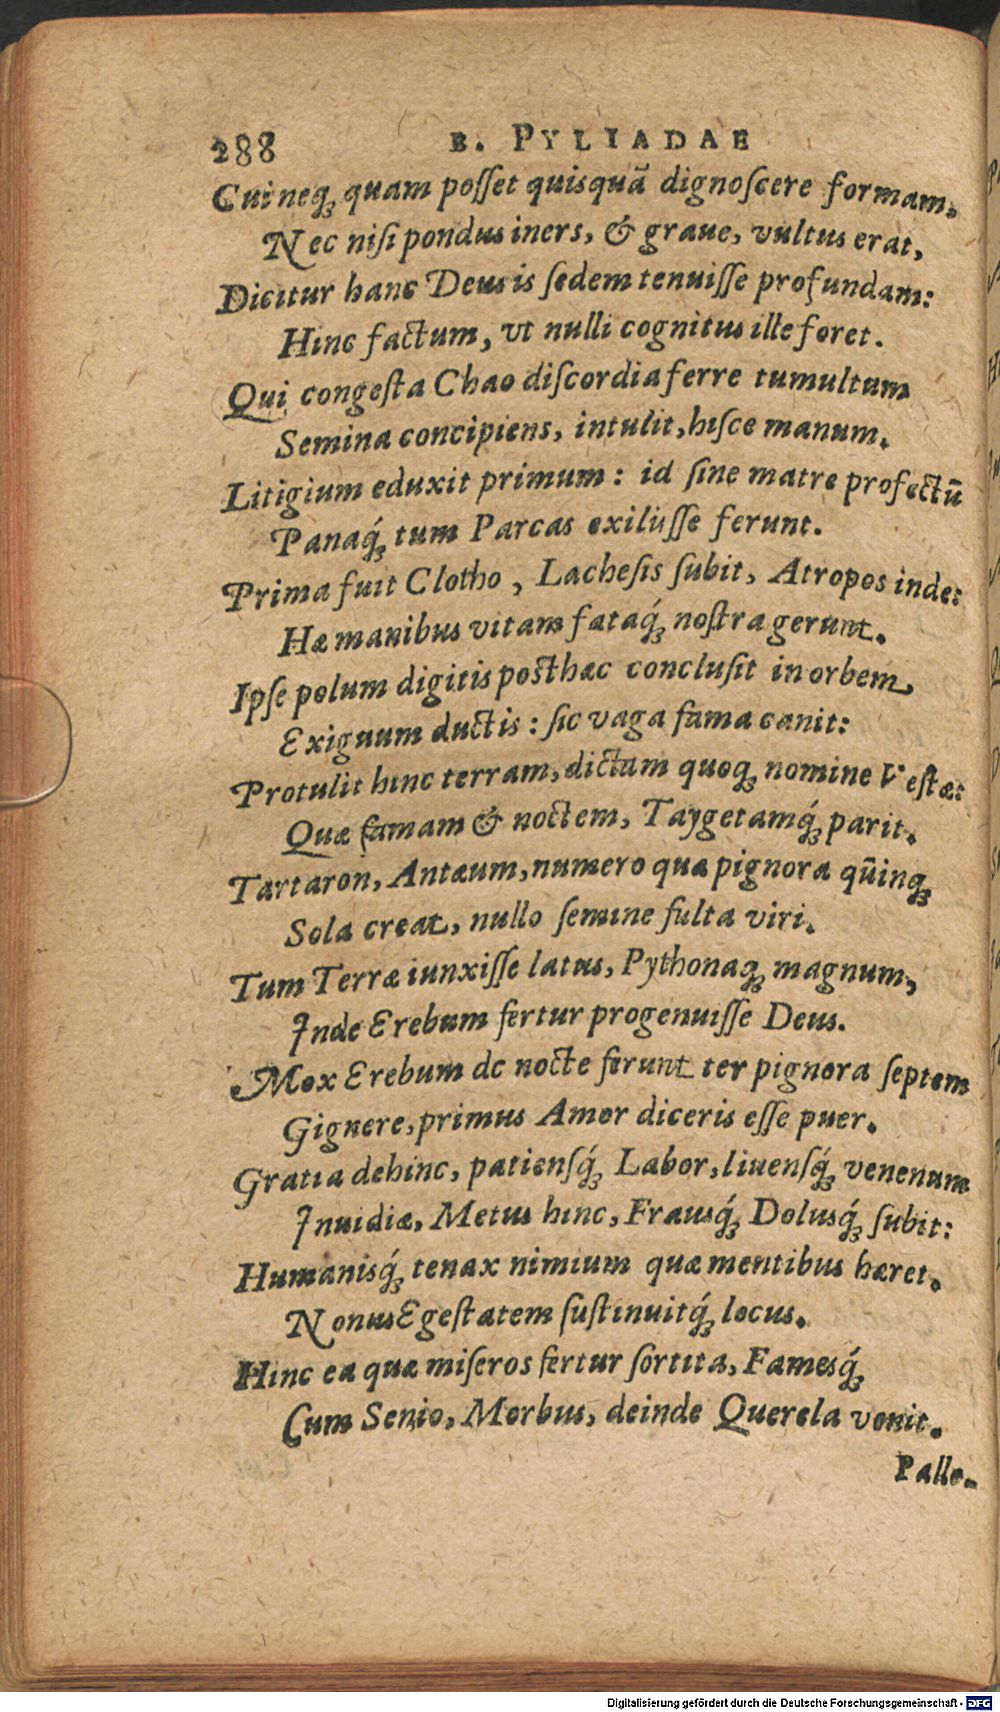 288 B. PYLIADAE
Cui neq́; quam poſſet quisquã dignoſcere formam,
Nec niſi pondus iners, & graue, vultus erat,
Dicitur hanc Deus is ſedem tenuiſſe profundam:
Hinc factum, vt nulli cognitus ille foret.
Qui congeſta Chao diſcordia ferre tumultum
Semina concipiens, intulit, hiſce manum.
Litigium eduxit primum: id ſine matre profectũ
Panaq́; tum Parcas exiluſſe ferunt.
Prima fuit Clotho, Lacheſis ſubit, Atropos inde:
Hæ manibus vitam fataq́; noſtra gerunt.
Ipſe polum digitis poſthæc concluſit in orbem,
Exiguum ductis: ſic vaga fama canit:
Protulit hinc terram, dictam quoq; nomine Veſtæ:
Quæ famam & noctem, Taygetamq́; parit.
Tartaron, Antæum, numero quæ pignora qũinq;
Sola creat, nullo ſemine fulta viri.
Tum Terræ iunxiſſe latus, Pythonaq; magnum,
Inde Erebum fertur progenuiſſe Deus.
Mox Erebum de nocte ferunt ter pignora ſeptem
Gignere, primus Amor diceris eſſe puer.
Gratia dehinc, patienſq́; Labor, liuenſq́; venenum
Inuidiæ, Metus hinc, Frausq́; Dolusq́; ſubit:
Humanisq́; tenax nimium quæ mentibus hæret.
Nonus Egeſtatem ſuſtinuitq́; locus.
Hinc ea quæ miſeros fertur ſortita, Famesq́;
Cum Senio, Morbus, deinde Querela venit.
Palle-
Digitalisierung gefördert durch die Deutsche Forschungsgemeinschaft - DFG